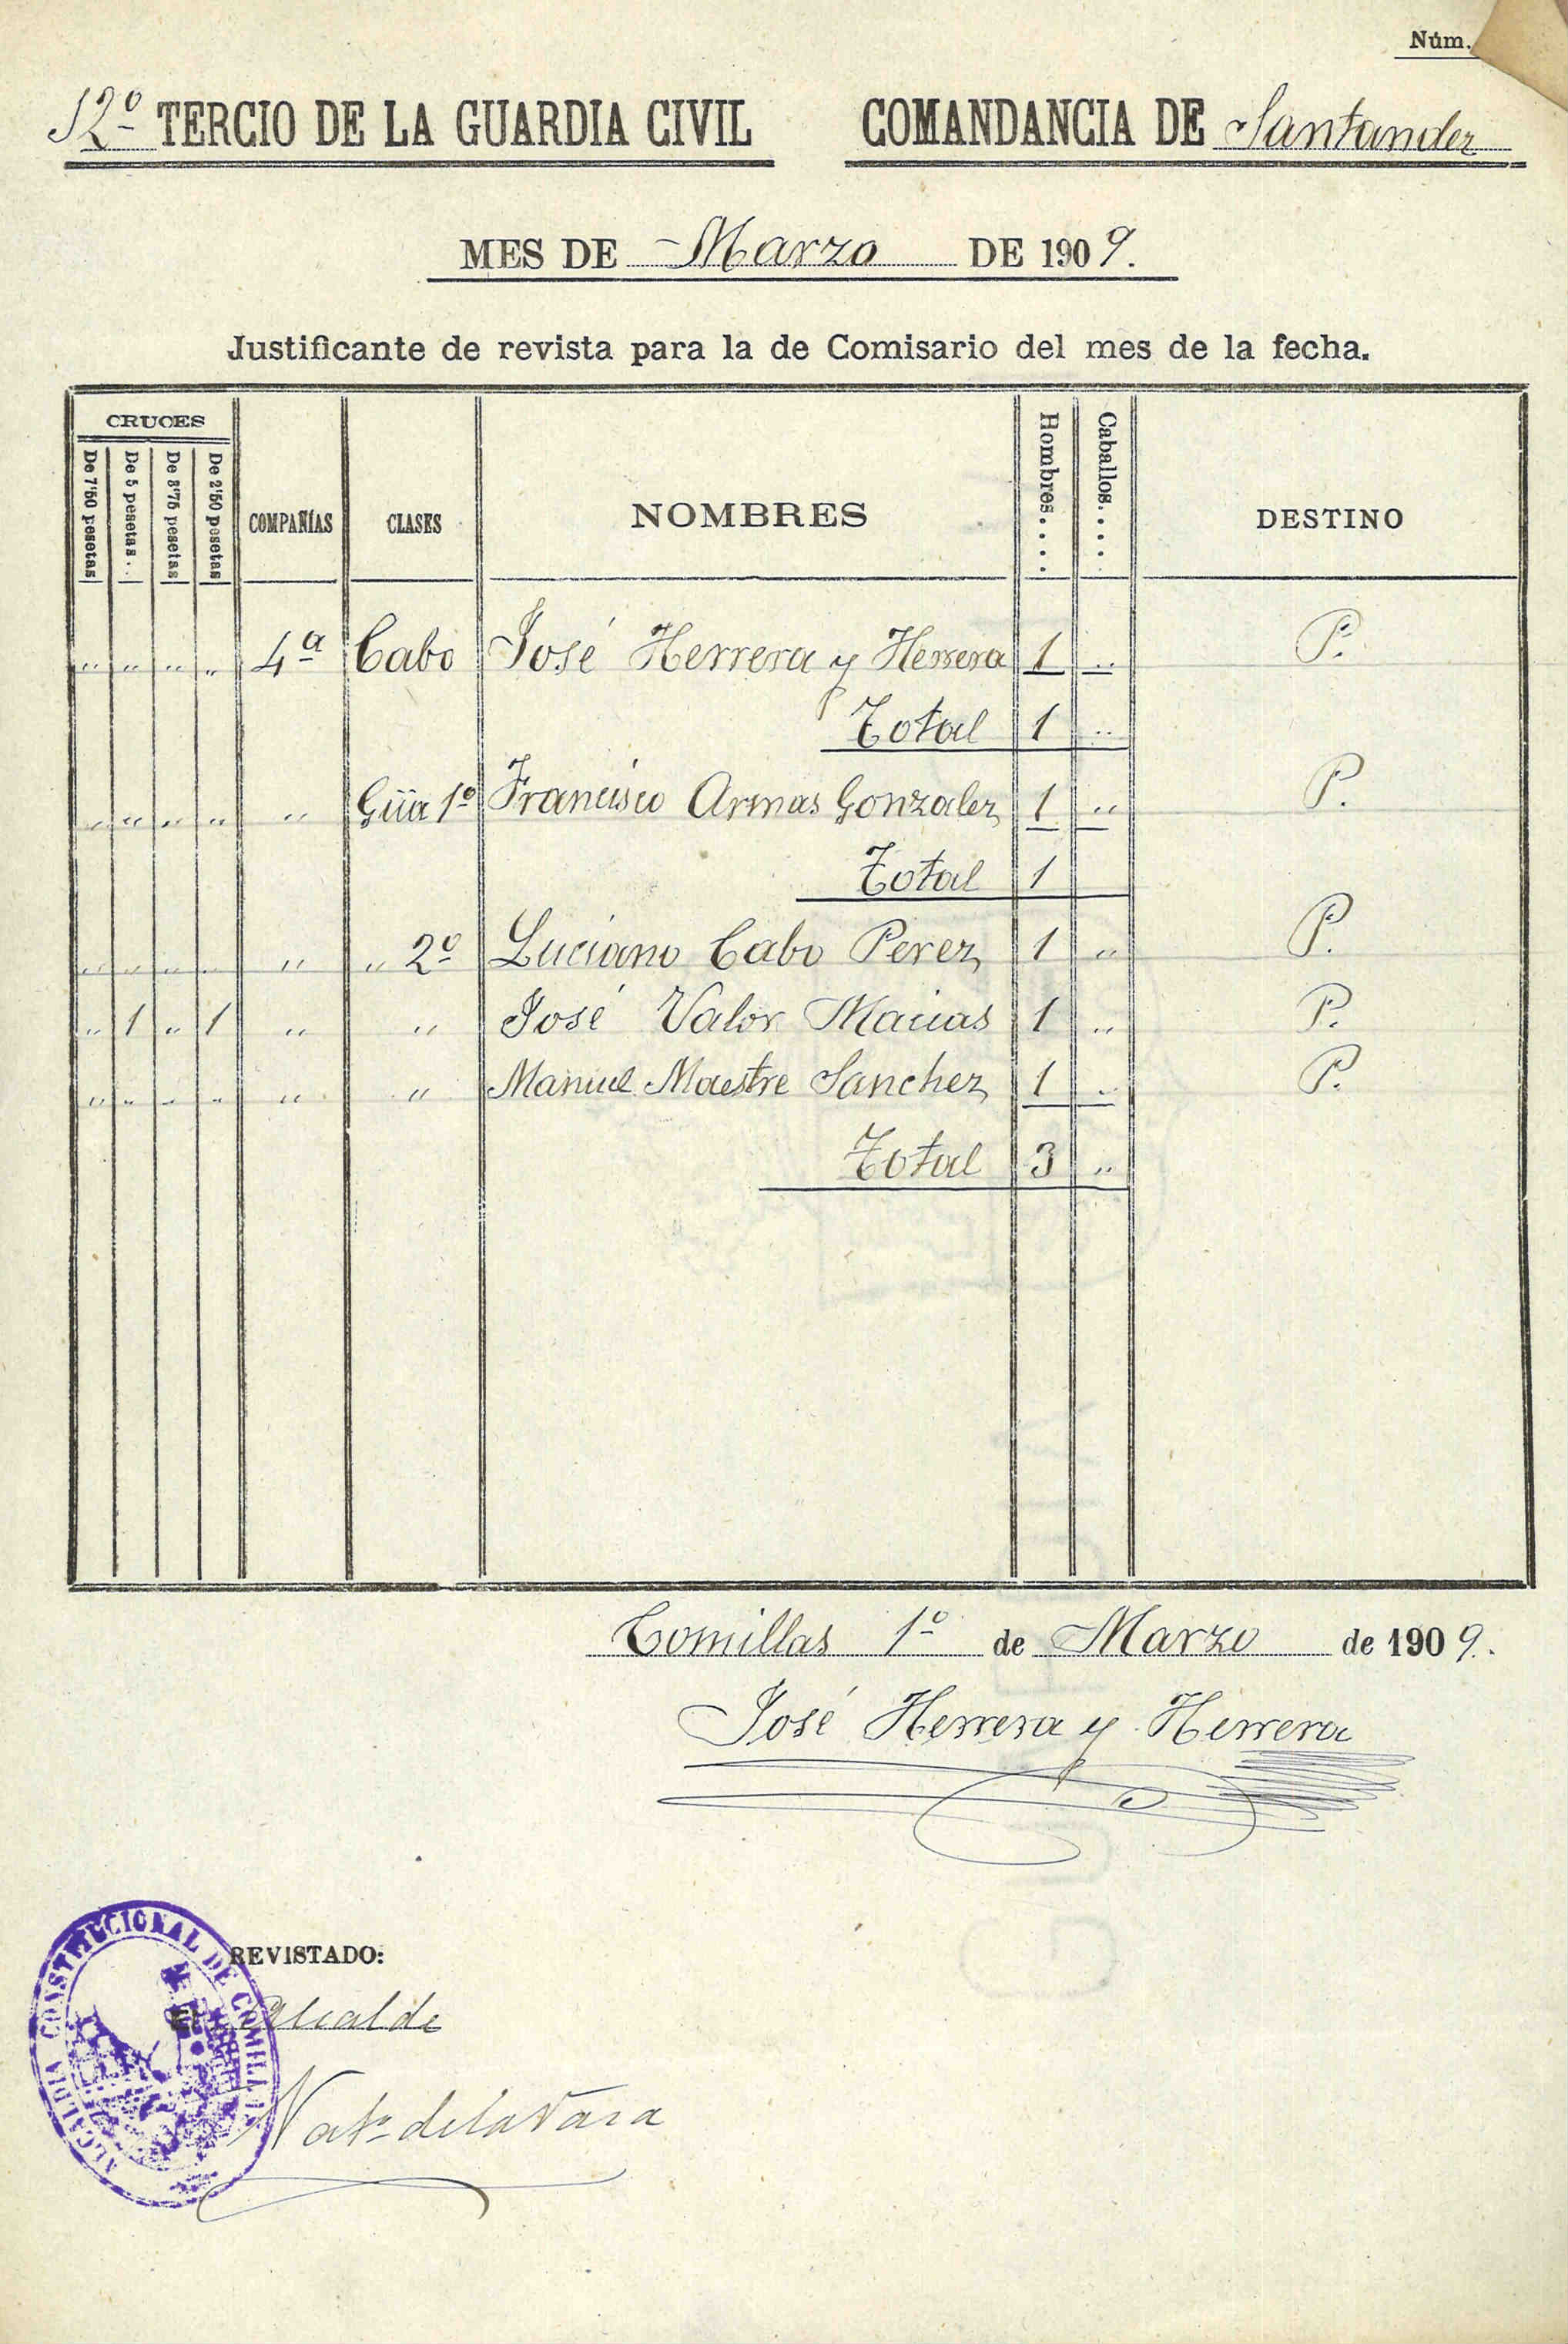 Núm.
12º TERCIO DE LA GUARDIA CIVIL COMANDANCIA DE Santander
MES DE Marzo DE 1909.
Justificante de revista para la de Comisario del mes de la fecha.
CRUCES
De 7'50 pesetas De 5 pesetas.. De 3'75 pesetas De 2'50 pesetas COMPAÑÍAS CLASES NOMBRES Hombres.... Caballos.... DESTINO
" " " " 4ª Cabo José Herrera y Herrera 1 " P.
Total 1 "
" " " " " Güa 1º Francisco Armas Gonzalez 1 " P.
Total 1
" " " " " " 2º Luciano Cabo Perez 1 " P.
" 1 " 1 " " José Valor Macias 1 " P.
" " " " " " Manuel Maestre Sanchez 1 " P.
Total 3 "
Comillas 1º de Marzo de 1909.
José Herrera y Herrera
REVISTADO:
El Alcalde
de la Vara
ALCALDIA CONSTITUCIONAL DE COMILLAS